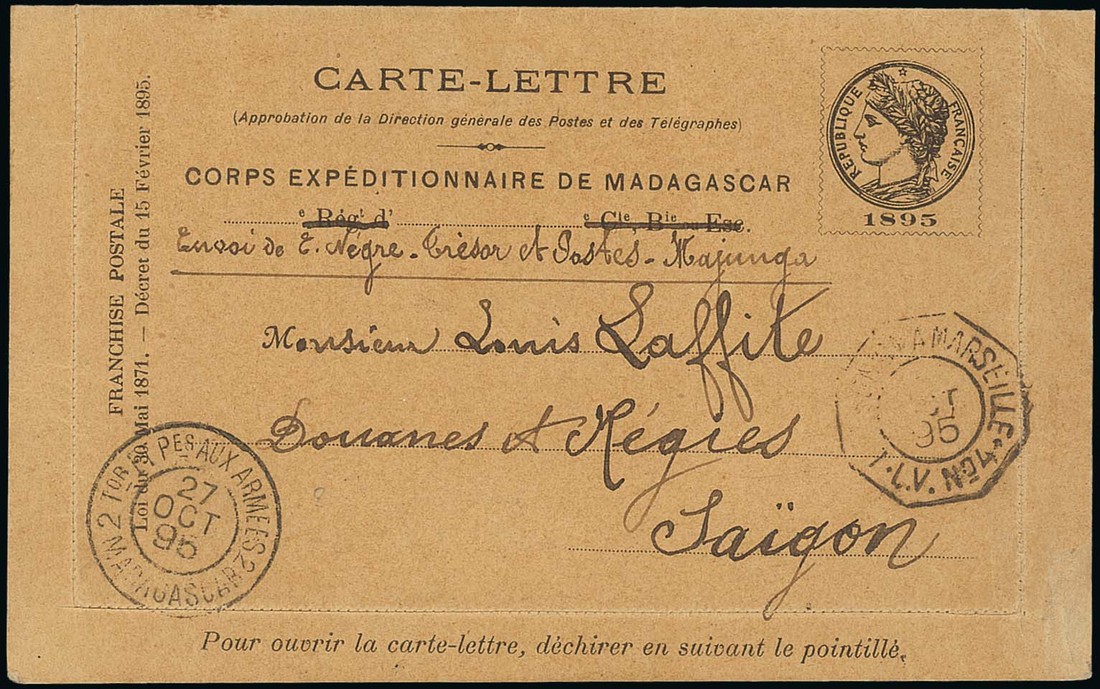 CARTE-LETTRE
(Approbation de la Direction générale des Postes et des Télégraphes)
CORPS EXPÉDITIONNAIRE DE MADAGASCAR
e Régt d' e Cie, Bie ou Esc.
Envoi de E. Nègre - Trésor et Postes - Majunga
Monsieur Louis Laffite
Douanes et Régies
Saïgon
RÉPUBLIQUE FRANÇAISE
1895
FRANCHISE POSTALE
Loi du 30 Mai 1871. — Décret du 15 Février 1895.
2 TOR ET PES AUX ARMEES 2
MADAGASCAR
27
OCT
95
A MARSEILLE
L.V. No 4
95
Pour ouvrir la carte-lettre, déchirer en suivant le pointillé.